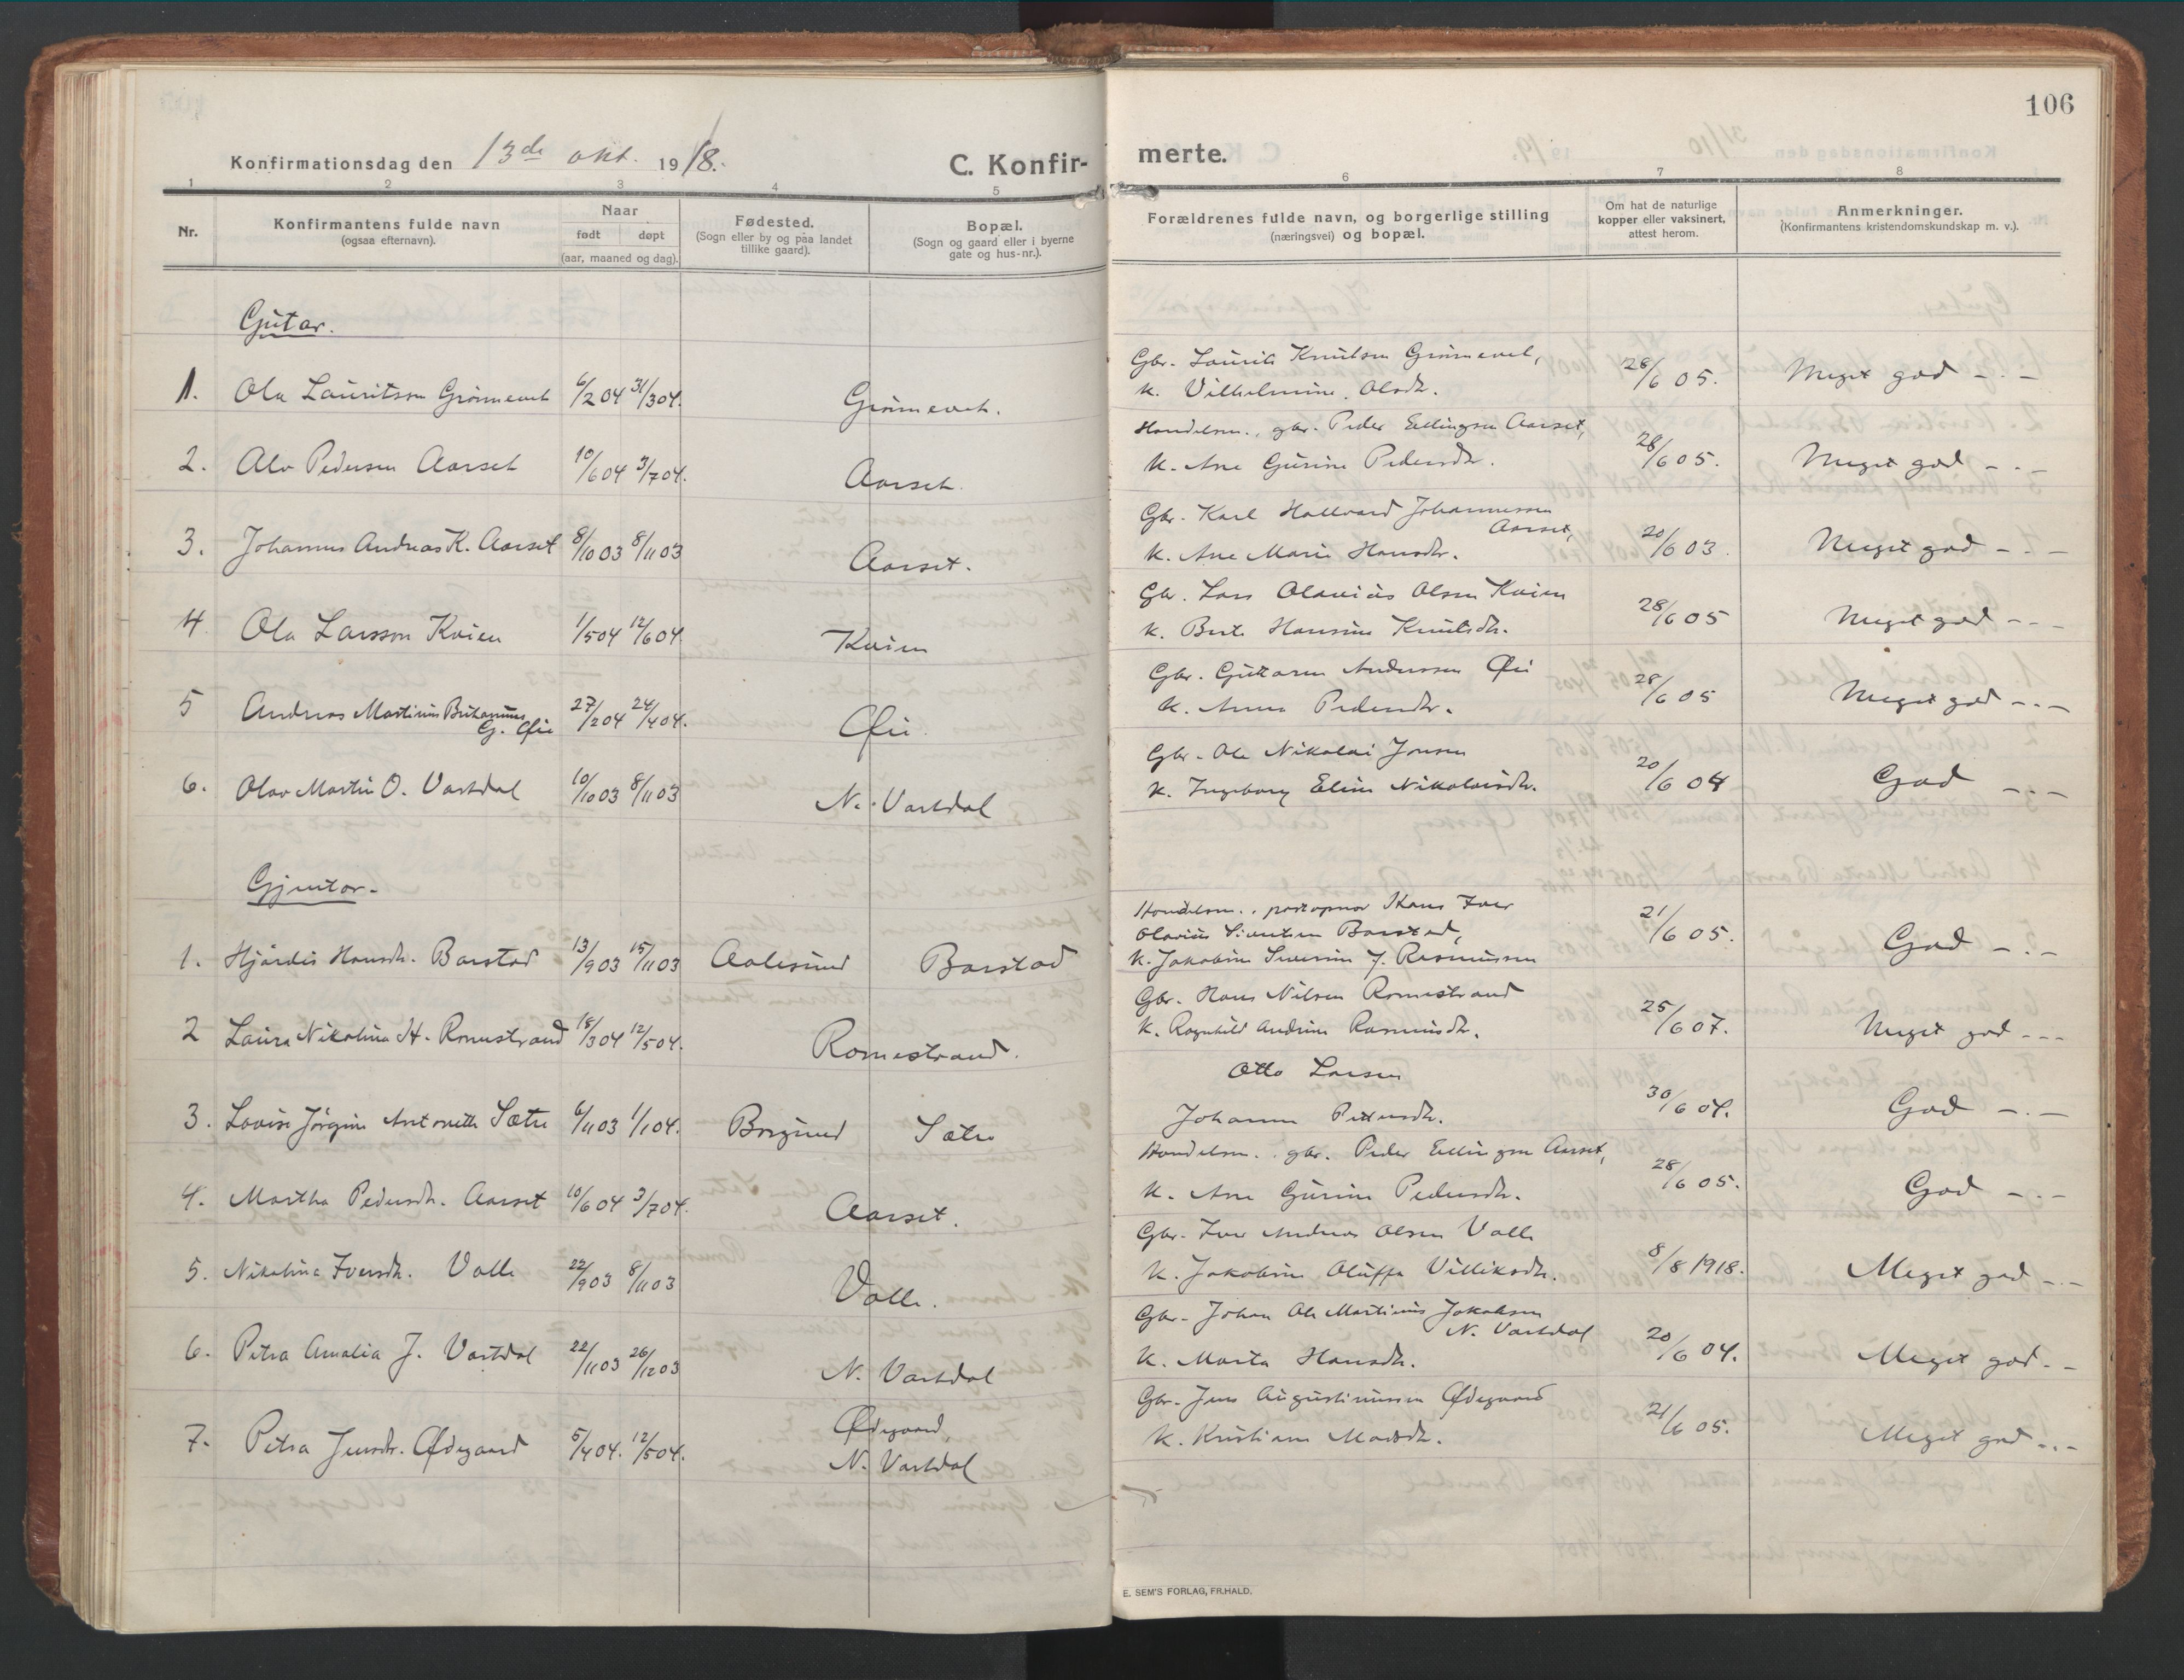 106
Konfirmationsdag den 13de okt. 1918.
C. Konfirmerte.
1 2 3 4 5 6 7 8
Nr.
Konfirmantens fulde navn
(ogsaa efternavn).
Naar
født døpt
(aar, maaned og dag).
Fødested.
(Sogn eller by og paa landet
tillike gaard).
Bopæl.
(Sogn og gaard eller i byerne
gate og hus-nr.).
Forældrenes fulde navn, og borgerlige stilling
(næringsvei) og bopæl.
Om hat de naturlige
kopper eller vaksinert,
attest herom.
Anmerkninger.
(Konfirmantens kristendomskundskap m. v.).
Gutar.
1. Ola Lauritson Grönnevet 6/2 04 31/3 04. Grönnevet.
Gbr. Laurits Knutsen Grönnevet,
K. Vilhelmine Olsdtr. 28/6 05. Meget god -.-
2. Alv Pedersen Aarset 10/6 04 3/7 04. Aarset.
Handelsm., gbr. Peder Ellingsen Aarset,
K. Ane Gurine Pedersdtr. 28/6 05. Meget god -.-
3. Johannes Andreas K. Aarset 8/10 03 8/11 03 Aarset.
Gbr. Karl Hallvard Johannessen
Aarset,
K. Ane Marie Hansdtr. 20/6 03. Meget god -.-
4 Ola Larsson Kvien 1/5 04 12/6 04. Kvien
Gbr. Lars Olavius Olsen Kvien
K. Berte Hansine Knutsdtr. 28/6 05 Meget god ---
5 Andreas Martinus
G. Øie 27/2 04 24/4 04. Øie.
Gbr. Guttorm Anderssen Øie
K. Anna Pedersdtr. 28/6 05 Meget god -.-
6. Olav Martin O. Vartdal 10/10 03 8/11 03 N. Vartdal
Gbr. Ole Nikolai Jonsen
K. Ingeborg Eline Nikolaisdtr. 20/6 04 God -.-
Gjentor.
1. Hjördis Hansdtr. Barstad 13/9 03 15/11 03 Aalesund Barstad
Handelsm., postopnar Hans Iver
Olavius Sivertsen Barstad,
K. Jakobine Severine J. Rasmussen 21/6 05. God -.-
2 Laura Nikolina H. Romestrand 18/3 04 12/5 04. Romestrand.
Gbr. Hans Nilsen Romestrand
K. Ragnhild Andrine Rasmusdtr. 25/6 07. Meget god ---
3. Lovise Jörgine Antonette Sætre 6/11 03 1/1 04. Borgund Sætre
Otto Larsen
Johanne Pettersdtr. 30/6 04. God -.-
4. Martha Pedersdtr. Aarset 10/6 04 3/7 04. Aarset.
Handelsm., gbr. Peder Ellingsen Aarset,
K. Ane Gurine Pedersdtr. 28/6 05. God -.-
5. Nikolina Iversdtr. Valle 22/9 03 8/11 03 Valle.
Gbr. Iver Andreas Olsen Valle
K. Jakobine Oluffa Villiksdtr. 8/8 1918. Meget god -.-
6. Petra Amalia J. Vartdal 22/11 03 26/12 03 N. Vartdal
Gbr. Johan Ole Martinus Jakobsen
N. Vartdal
K. Marta Hansdtr. 20/6 04. Meget god.-
7. Petra Jensdtr. Ødegaard 5/4 04. 12/5 04. Ødegaard,
N. Vartdal
Gbr. Jens Augustinussen Ødegaard
K. Kristiane Madsdtr. 21/6 05. Meget god -.-
E. SEM'S FORLAG, FR.HALD.